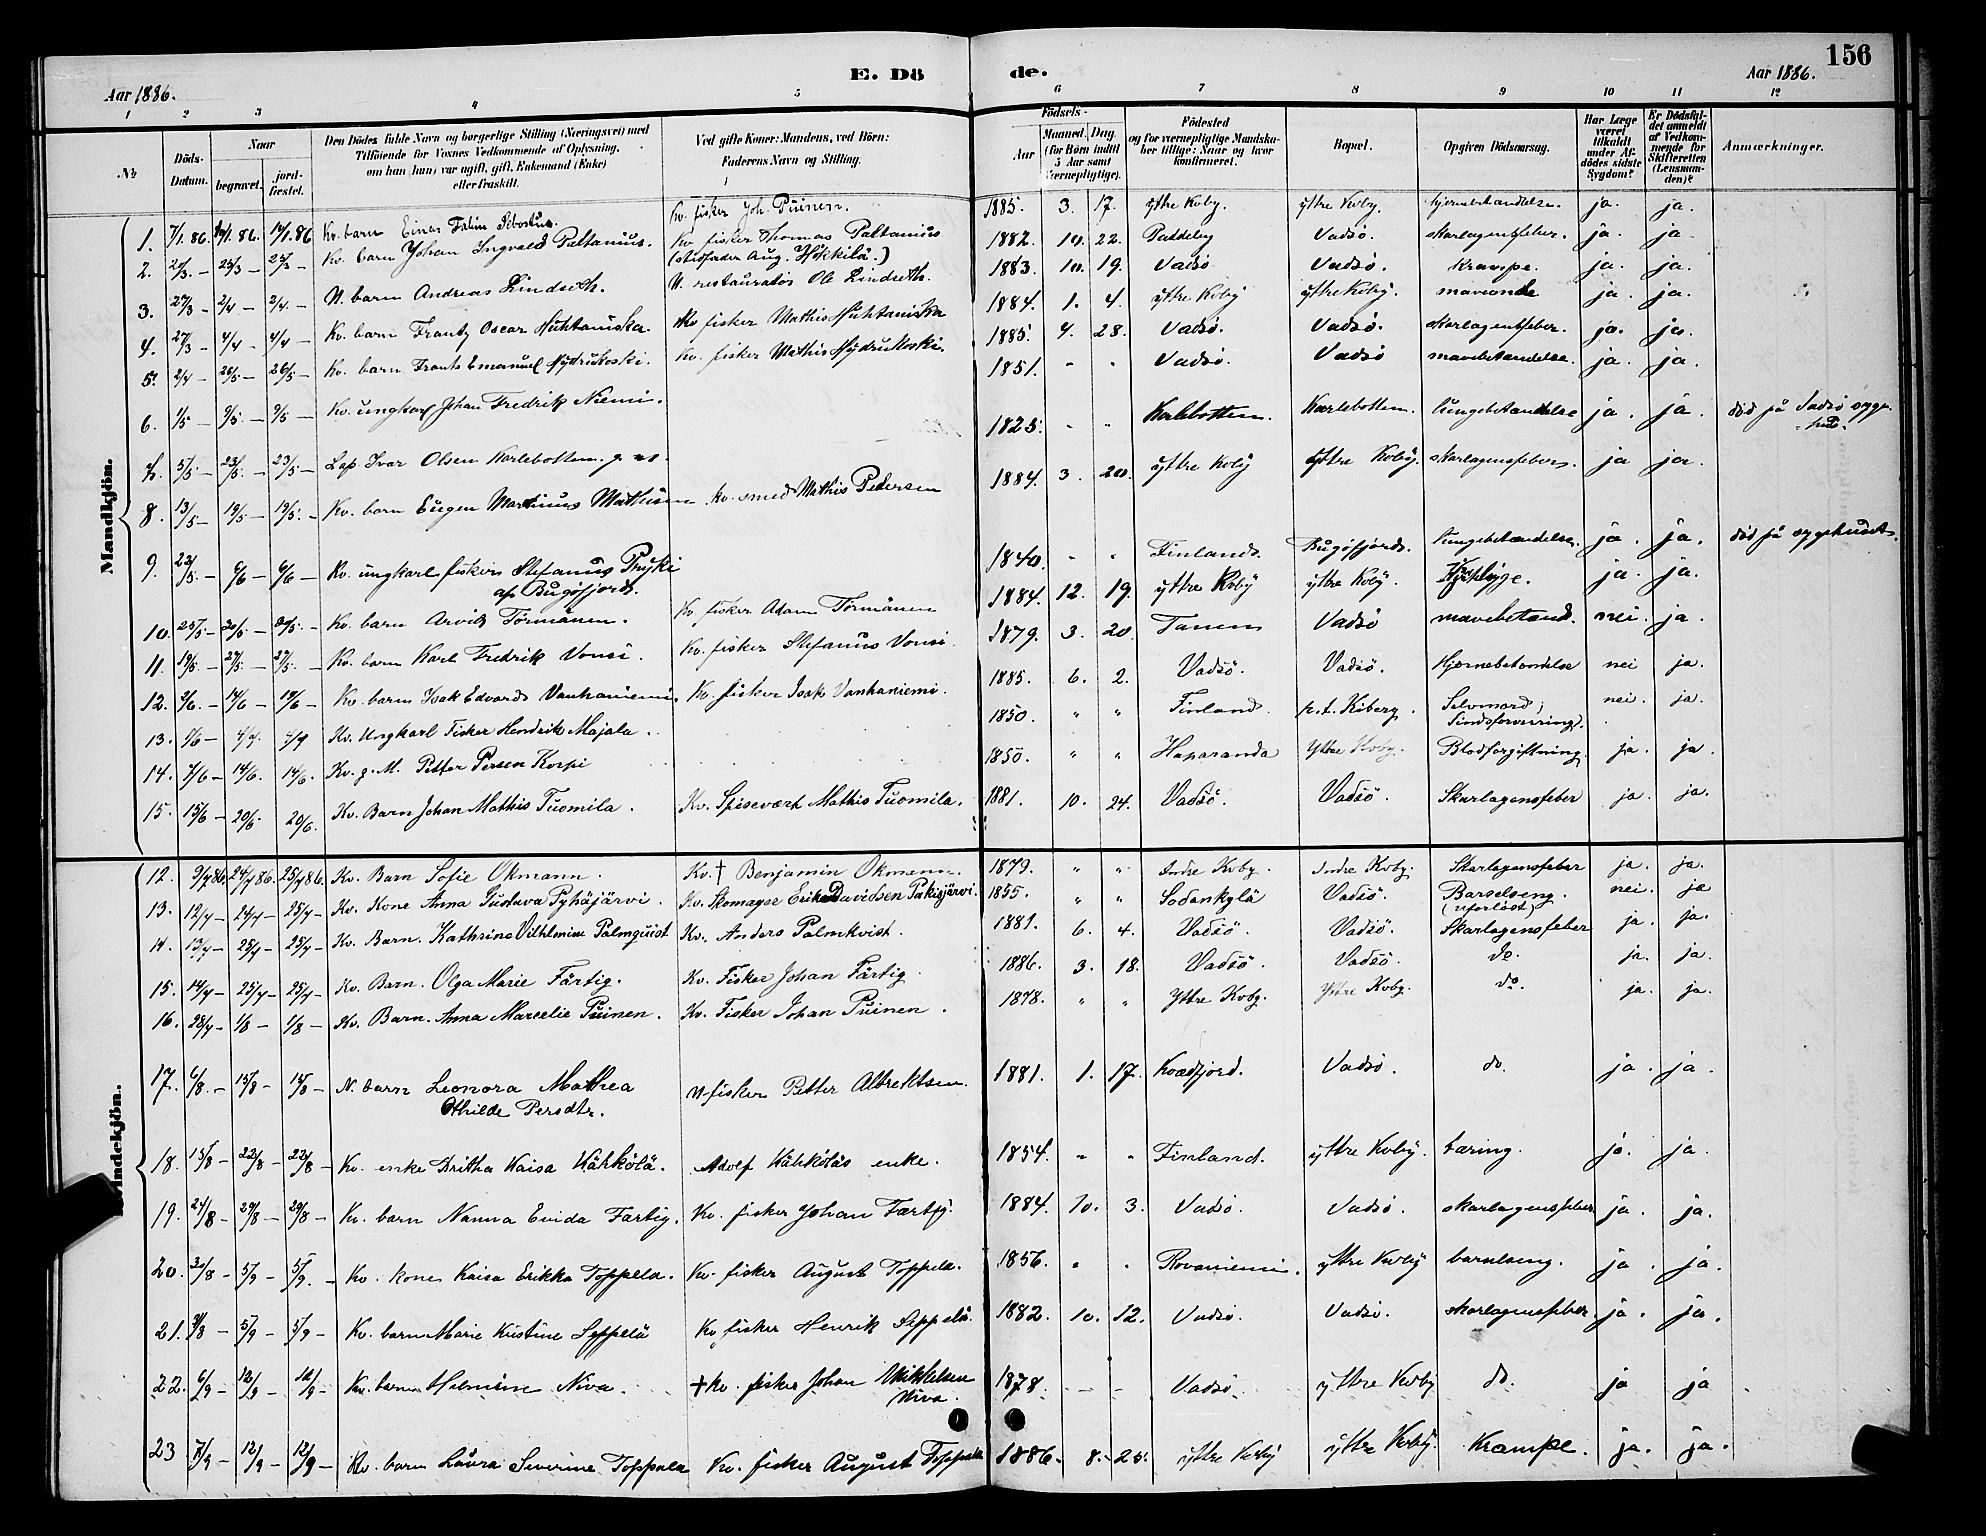 156
E. Dö de.
Aar 1886. Aar 1886.
1 2 3 4 5 6 7 8 9 10 11 12
No Döds-Datum. Naar begravet. jord-fæstet. Den Dödes fulde Navn og borgerlige Stilling (Næringsvei) med Tilföiende for Voxnes Vedkommende af Oplysning, om han (hun) var ugift, gift, Enkemand (Enke) eller fraskilt. Ved gifte Koner: Mandens, ved Börn: Faderens Navn og Stilling. Födsels- Aar Maaned. Dag. (for Börn indtil 5 Aar samt Værnepligtige). Födested og for værnepligtige Mandskaber tillige: Naar og hvor konfirmeret. Bopæl. Opgiven Dödsaarsag. Har Læge været tilkaldt under Afdödes sidste Sygdom? Er Dödsfaldet anmeldt af Vedkommende for Skifteretten (Lensmanden)? Anmærkninger.
Mandkjön.
1. 7/1.86. 14/1.86. 14/1.86 Kv. barn Einar Kv. fisker Joh. Puinen. 1885. 3. 17. ytre Kvby. ytre Kvby. hjernebetændelse. ja. ja.
2. 21/3 – 25/3 – 25/3 – Kv. barn Johan Ingvald Paltanius. Kv fisker Thomas Paltanius (stedfader Aug. Hokkilä.) 1882. 10. 22. Paddeby Vadsö. skarlagensfeber. ja. ja
3. 27/3 – 2/4 – 2/4. – N. barn Andreas Lindseth. N. restauratör Ole Lindseth. 1883. 10. 19. Vadsö Vadsö. Krampe. ja. ja.
4. 27/3 – 4/4 – 4/4 – Kv. barn Frantz Oscar Huhtaniska Kv fisker Mathis Huhtaniska 1884. 1. 4. ytre Kvby ytre Kvby. maveonde ja. ja.
5. 2/4 – 26/5 – 26/5 – Kv. barn Frants Emanuel Nydrukoski. Kv. fisker Mathis Nydrukoski. 1885. 4. 28. Vadsö. Vadsö. skarlagensfeber. ja. ja.
6. 1/5 – 9/5 – 9/5 – Kv. ungkarl Johan Fredrik Niemi. 1851. " " Vadsö. Vadsö mavebetændelse. ja. ja.
7. 5/5 – 23/5 – 23/5 – Lap. Ivar Olsen Karlebotten. g. m. 1825. " " Karlebotten. Karlebotten. lungebetændelse ja. ja. död på Vadsö syge-hus.
8. 13/5 – 19/5 – 19/5. – Kv. barn Eugen Martinus Mathisen. Kv. smed Mathis Pedersen 1884. 3. 20. ytre Kvby ytre Kvby. skarlagensfeber. ja ja.
9. 23/5. – 6/6 – 6/6 – Kv. ungkarl fisker Stefanus Pryki af Bugöfjord. 1840. " " Finland. Bugöfjord. lungebetændelse. ja. ja. död på sygehuset.
10. 25/5 – 30/5 – 30/5. – Kv. barn Arvid Törmänen. Kv. fisker Adam Törmänen 1884. 12. 19. ytre Kvby ytre Kvby. ja. ja.
11. 19/5. – 27/5 – 27/5. – Kv. barn Karl Fredrik Vonsi. Kv. fisker Stefanus Vonsi. 1879. 3. 20. Tanen Vadsö mavebetænd. nei. ja.
12. 2/6. – 14/6 – 19/6 – Kv. barn Isak Edvard Vanhaniemi Kv. fisker Isak Vanhaniemi. 1885. 6. 2. Vadsö. Vadsö. Hjernebetændelse nei ja.
13. 7/6 – 4/9. 4/9 Kv. Ungkarl Fisker Hendrik Majala. 1850. " " Finland. p.t. Kiberg. Selvmord, Sindsforvirring. nei. ja.
14. 7/6 – 14/6. 14/6. Kv. g. M. Petter Persen Korpi 1850. " " Haparanda Ytre Kvby. Blodforgiftning. ja. ja.
15. 15/6 – 20/6 20/6. Kv. Barn Johan Mathis Tuomila. Kv. Spisevært Mathis Tuomila. 1881. 10. 24. Vadsö. Vadsö. Skarlagensfeber ja. ja.
Kvindekjön.
12. 9/7 86. 24/7 86. 25/7 86. Kv. Barn Sofie Okmann. Kv. † Benjamin Okmann. 1879. " " Indre Kvby. Indre Kvby. Skarlagensfeber ja. ja.
13. 12/7 – 24/7 – 25/7 – Kv. Kone Anna Gustava Pyhäjärvi. Kv. Skomager Erik Davidsen Pakisjärvi. 1855. " " Sodankylä Vadsö. Barselseng. (uforlöst) nei. ja
14. 13/7 – 25/7 – 25/7 – Kv. Barn. Kathrine Vilhelmine Palmquist Kv. Anders Palmkvist. 1881. 6. 4. Vadsö. Vadsö. Skarlagensfeber ja. ja.
15. 14/7 – 25/7 – 25/7 – Kv. Barn. Olga Marie Färtig. Kv. Fisker Johan Färtig. 1886. 3. 18. Vadsö. Vadsö. do. ja. ja.
16. 28/7 – 1/8 – 1/8 – Kv. Barn. Anna Marcelie Puinen. Kv. Fisker Johan Puinen. 1878. " " Ytre Kvby. Ytre Kvby. do. ja. ja.
17. 6/8 – 15/8 – 15/8 – N. barn Leonora Mathea Othilde Persdtr. N. fisker Petter Albrektsen. 1881. 1. 17. Kvædfjord. Vadsö. do. ja. ja.
18. 15/8 – 22/8 – 22/8 – Kv. enke Britha Kaisa Kähkölä. Adolf Kähköläs enke. 1854. " " Finland. ytre Kvby. tæring. ja. ja
19. 24/8 – 29/8 – 29/8 – Kv. barn Nanna Evida Færtig. Kv. fisker Johan Færtig. 1884. 10. 3. Vadsö. Vadsö. skarlagensfeber ja. ja.
20. 30/8 – 5/9 – 5/9. – Kv. kone Kaisa Erikka Toppela. Kv. fisker August Toppela. 1856. " " Rovaniemi. ytre Kvby barselseng. ja. ja.
21. 31/8 – 5/9 – 5/9 – Kv. barn Marie Kristine Seppelä Kv fisker Henrik Seppelä. 1882. 10. 12. Vadsö. Vadsö. skarlagensfeber ja. ja.
22. 6/9 – 12/9 – 12/9 – Kv. barn Helmine Niva. † Kv. fisker Johan Mikkelsen Niva 1878. – – Vadsö. ytre Kvby do. ja ja
23 8/9 – 12/9 – 12/9 – Kv. barn Laura Severine Toppela Kv. fisker August Toppela 1886. 8. 25. ytre Kvby ytre Kvby. Krampe. ja. ja.